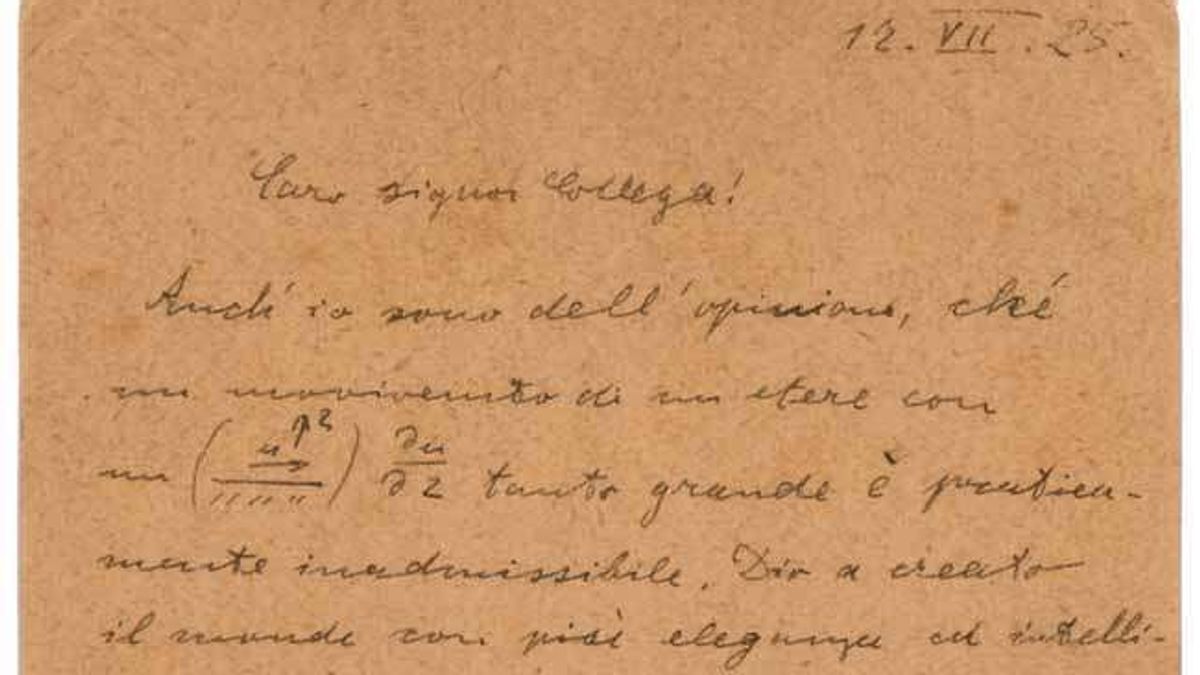 12. VII. 25.
Caro signor Collega!
Anch' io sono dell' opinione, ché
un movimento di un etere con
un ( ) ∂u/∂z tanto grande è pratica-
mente inadmissibile. Dio a creato
il mondo con più eleganza ed intelli-